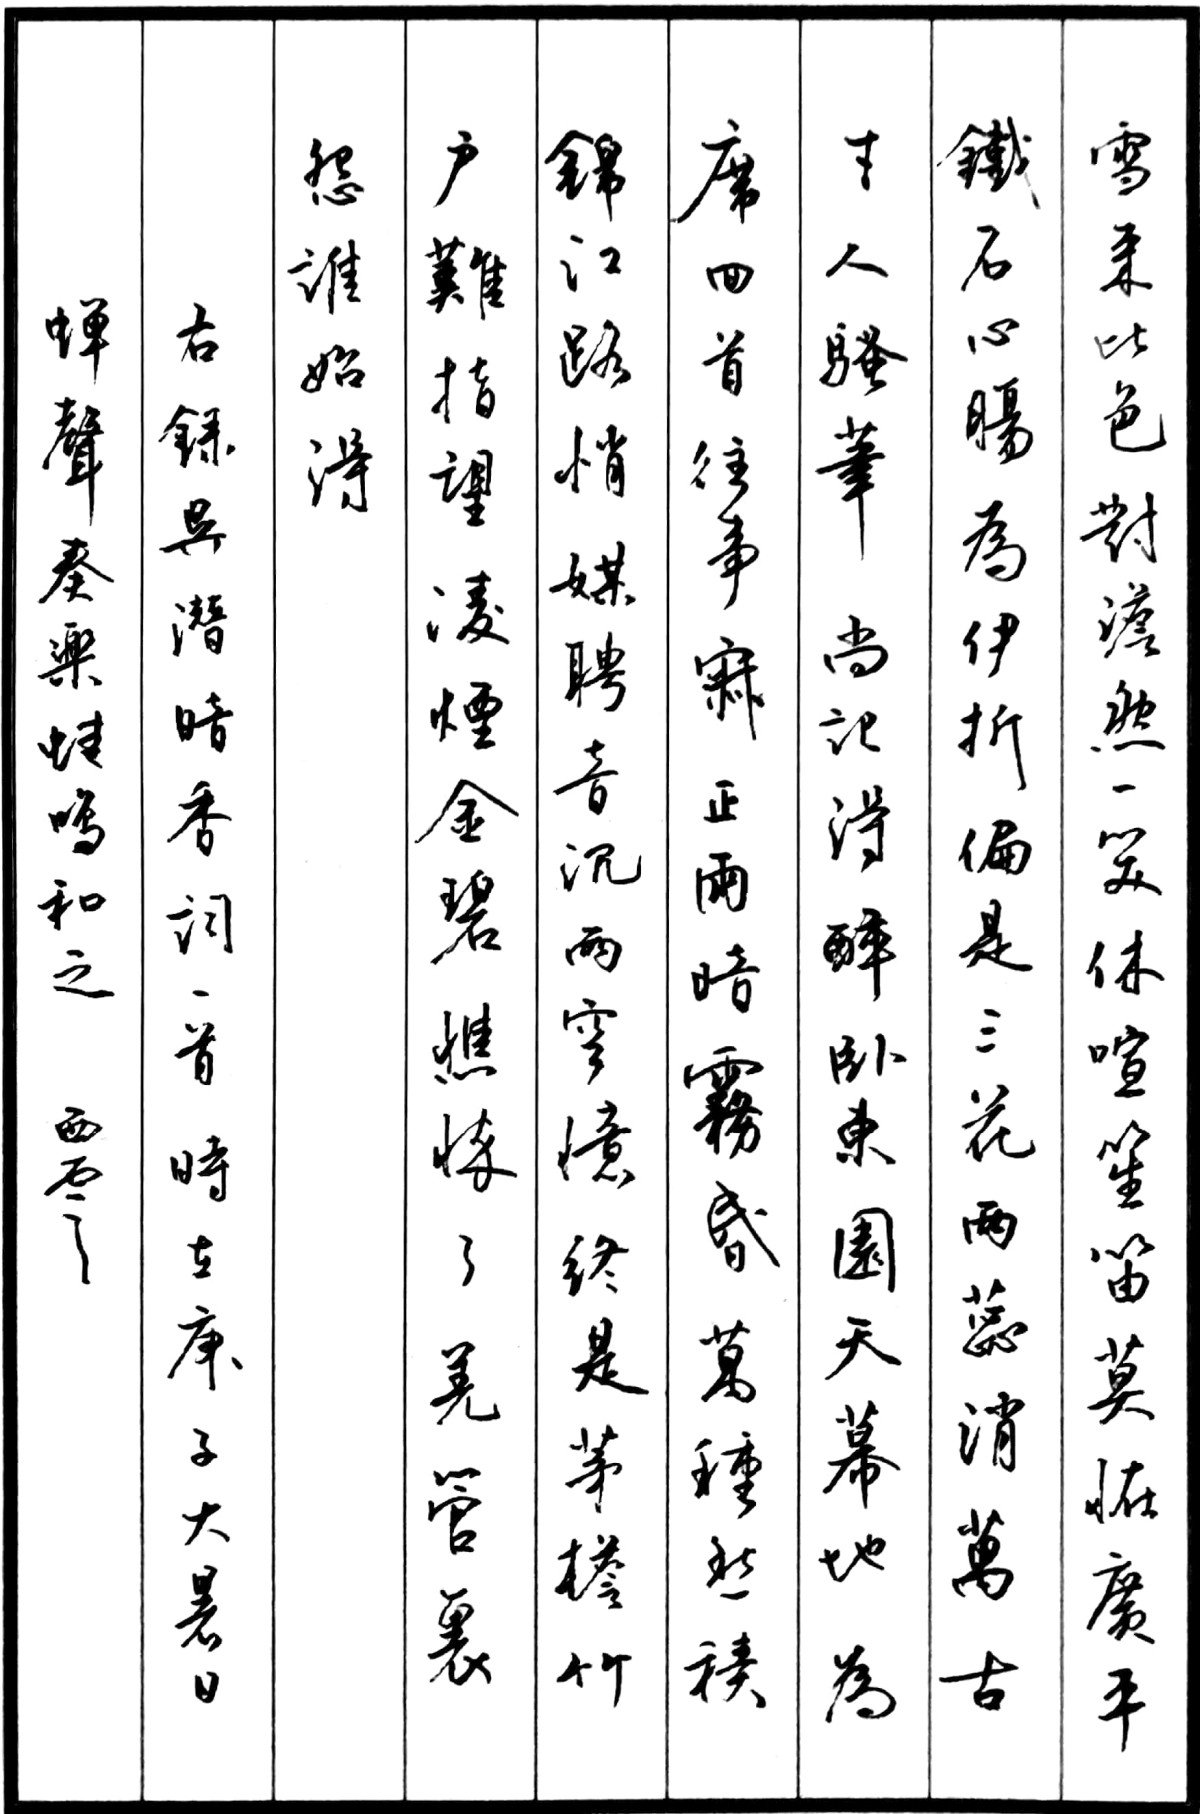 雪来比色對澹然一笑休喧笙笛莫怪廣平
鐵石心腸為伊折偏是三花兩蕊消萬古
才人騷筆尚記得醉卧東園天幕地為
席回首往事寂正雨暗霧昏萬種愁積
錦江路悄媒聘音沉兩空憶終是茅檐竹
户難指望凌煙金碧憔悴了羌管裏
怨誰始得
右録吳潛暗香詞一首時在庚子大暑日
蝉聲奏樂蛙鳴和之